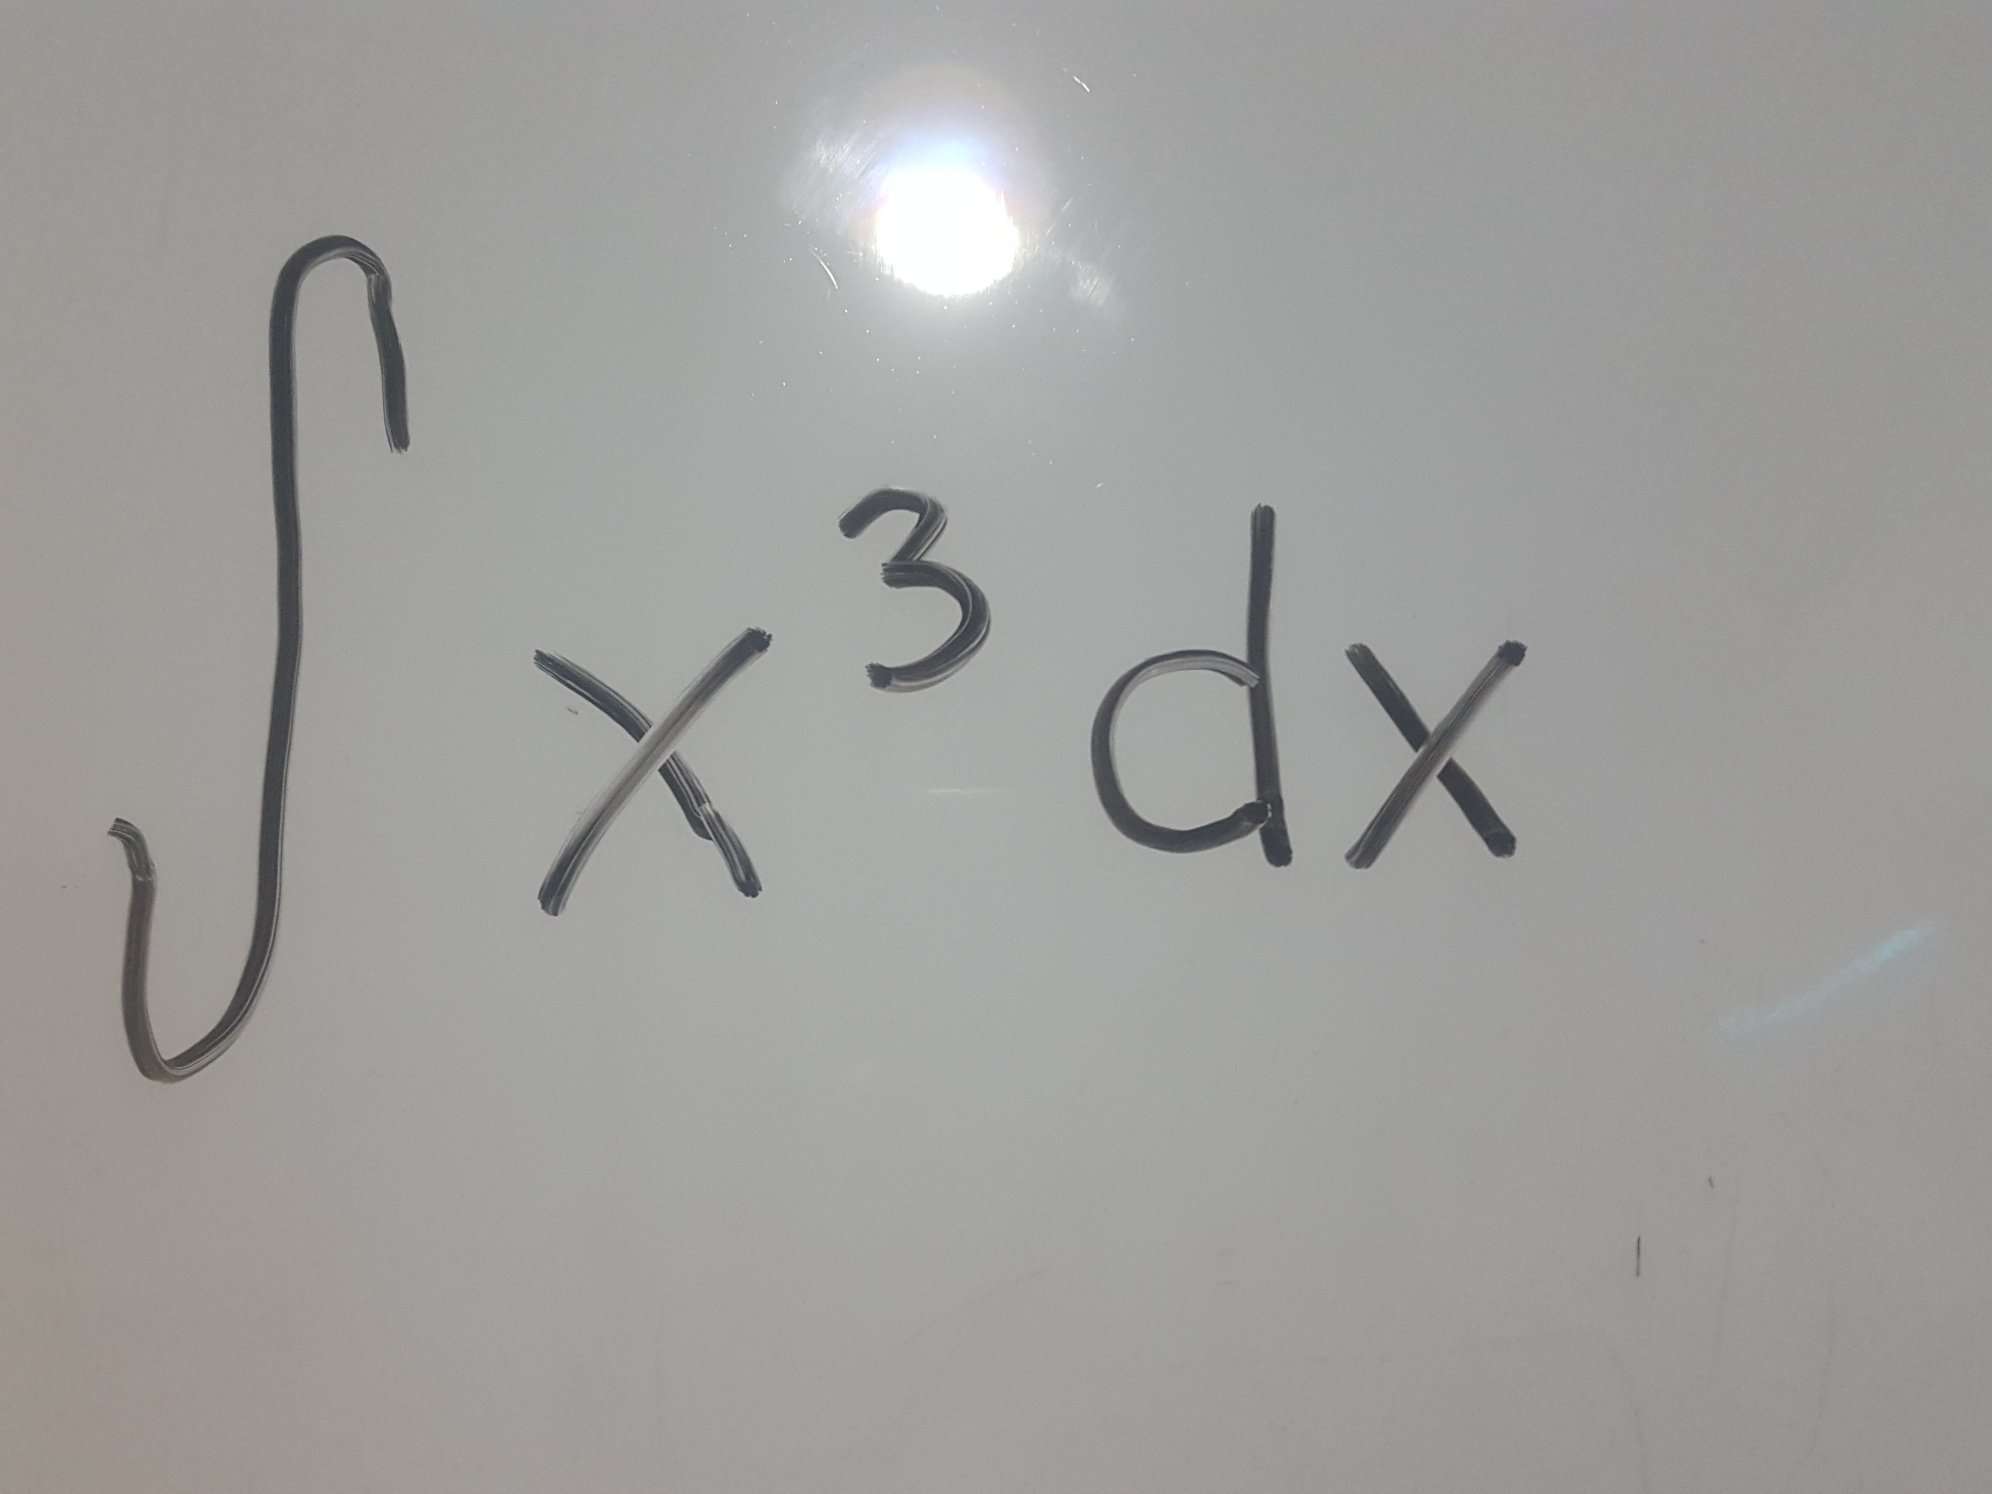 ∫ x³ dx